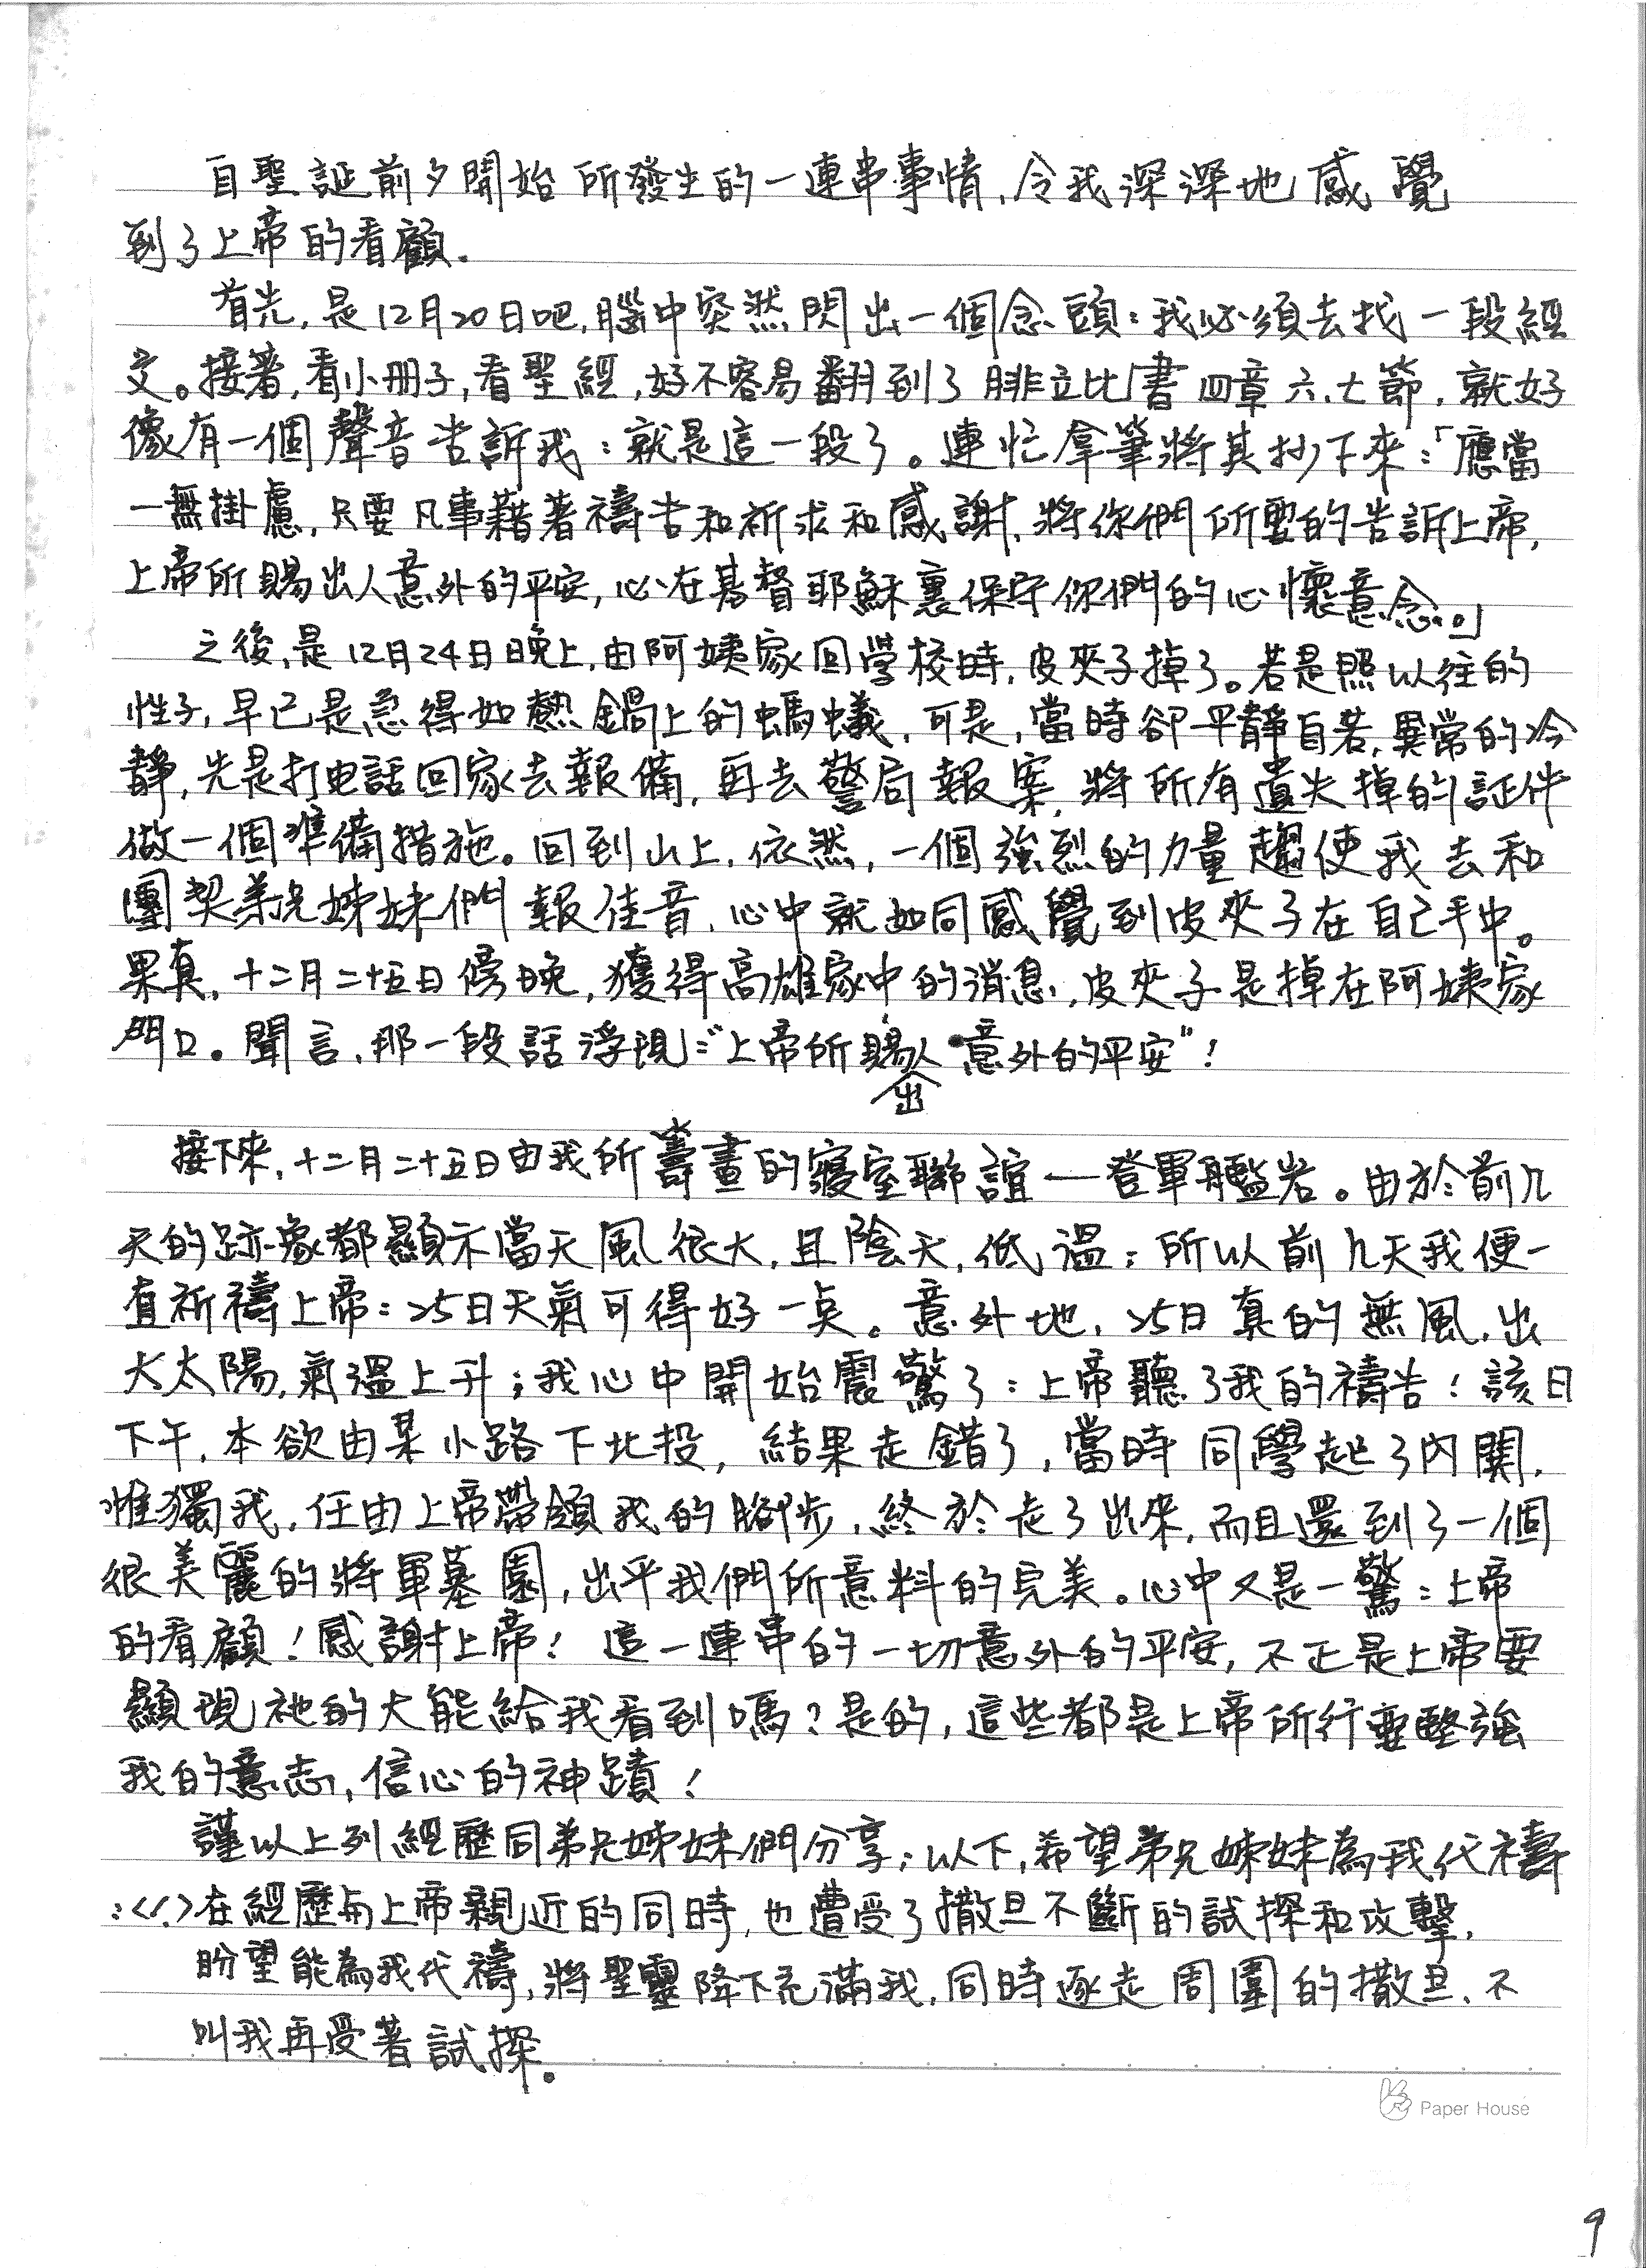 自聖誕前夕開始所發生的一連串事情,令我深深地感覺
到了上帝的看顧.
首先,是12月20日吧,腦中突然閃出一個念頭:我必須去找一段經
文。接著,看小冊子,看聖經,好不容易翻到了腓立比書四章六、七節,就好
像有一個聲音告訴我:就是這一段了。連忙拿筆將其抄下來:「應當
一無掛慮,只要凡事藉著禱告和祈求和感謝,將你們所要的告訴上帝,
上帝所賜出人意外的平安,必在基督耶穌裏保守你們的心懷意念。」
之後,是12月24日晚上,由阿姨家回學校時,皮夾子掉了。若是照以往的
性子,早已是急得如熱鍋上的螞蟻,可是,當時卻平靜自若,異常的冷
靜,先是打电話回家去報備,再去警局報案,將所有遺失掉的証件
做一個準備措施。回到山上,依然,一個強烈的力量趨使我去和
團契弟兄姊妹們報佳音,心中就如同感覺到皮夾子在自己手中。
果真,十二月二十五日傍晚,獲得高雄家中的消息,皮夾子是掉在阿姨家
門口。聞言,那一段話浮現:"上帝所賜出人意外的平安"!
接下來,十二月二十五日由我所籌畫的寢室聯誼—登軍艦岩。由於前几
天的跡象都顯示當天風很大,且陰天,低溫;所以前几天我便一
直祈禱上帝:25日天氣可得好一点。意外地,25日真的無風,出
大太陽,氣溫上升;我心中開始震驚了:上帝聽了我的禱告!該日
下午,本欲由某小路下北投,結果走錯了,當時同學起了內鬨,
惟獨我,任由上帝帶領我的腳步,終於走了出來,而且還到了一個
很美麗的將軍墓園,出乎我們所意料的完美。心中又是一驚:上帝
的看顧!感謝上帝!這一連串的一切意外的平安,不正是上帝要
顯現祂的大能給我看到嗎?是的,這些都是上帝所行要堅強
我的意志,信心的神蹟!
謹以上列經歷同弟兄姊妹們分享;以下,希望弟兄姊妹為我代禱
:<1.>在經歷與上帝親近的同時,也遭受了撒旦不斷的試探和攻擊,
盼望能為我代禱,將聖靈降下充滿我,同時逐走周圍的撒旦、不
叫我再受著試探。
Paper House
9